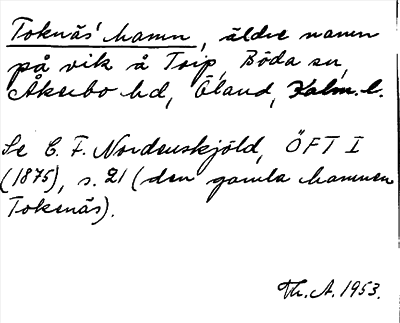 Toknäs' hamn, äldre namn
på vik å Torp, Böda sn,
Åkerbo hd, Öland, Kalm. l.
Se C. F. Nordenskjöld, ÖFT I
(1875), s. 21 (den gamla hamnen
Tokenäs).
Th. A. 1953.